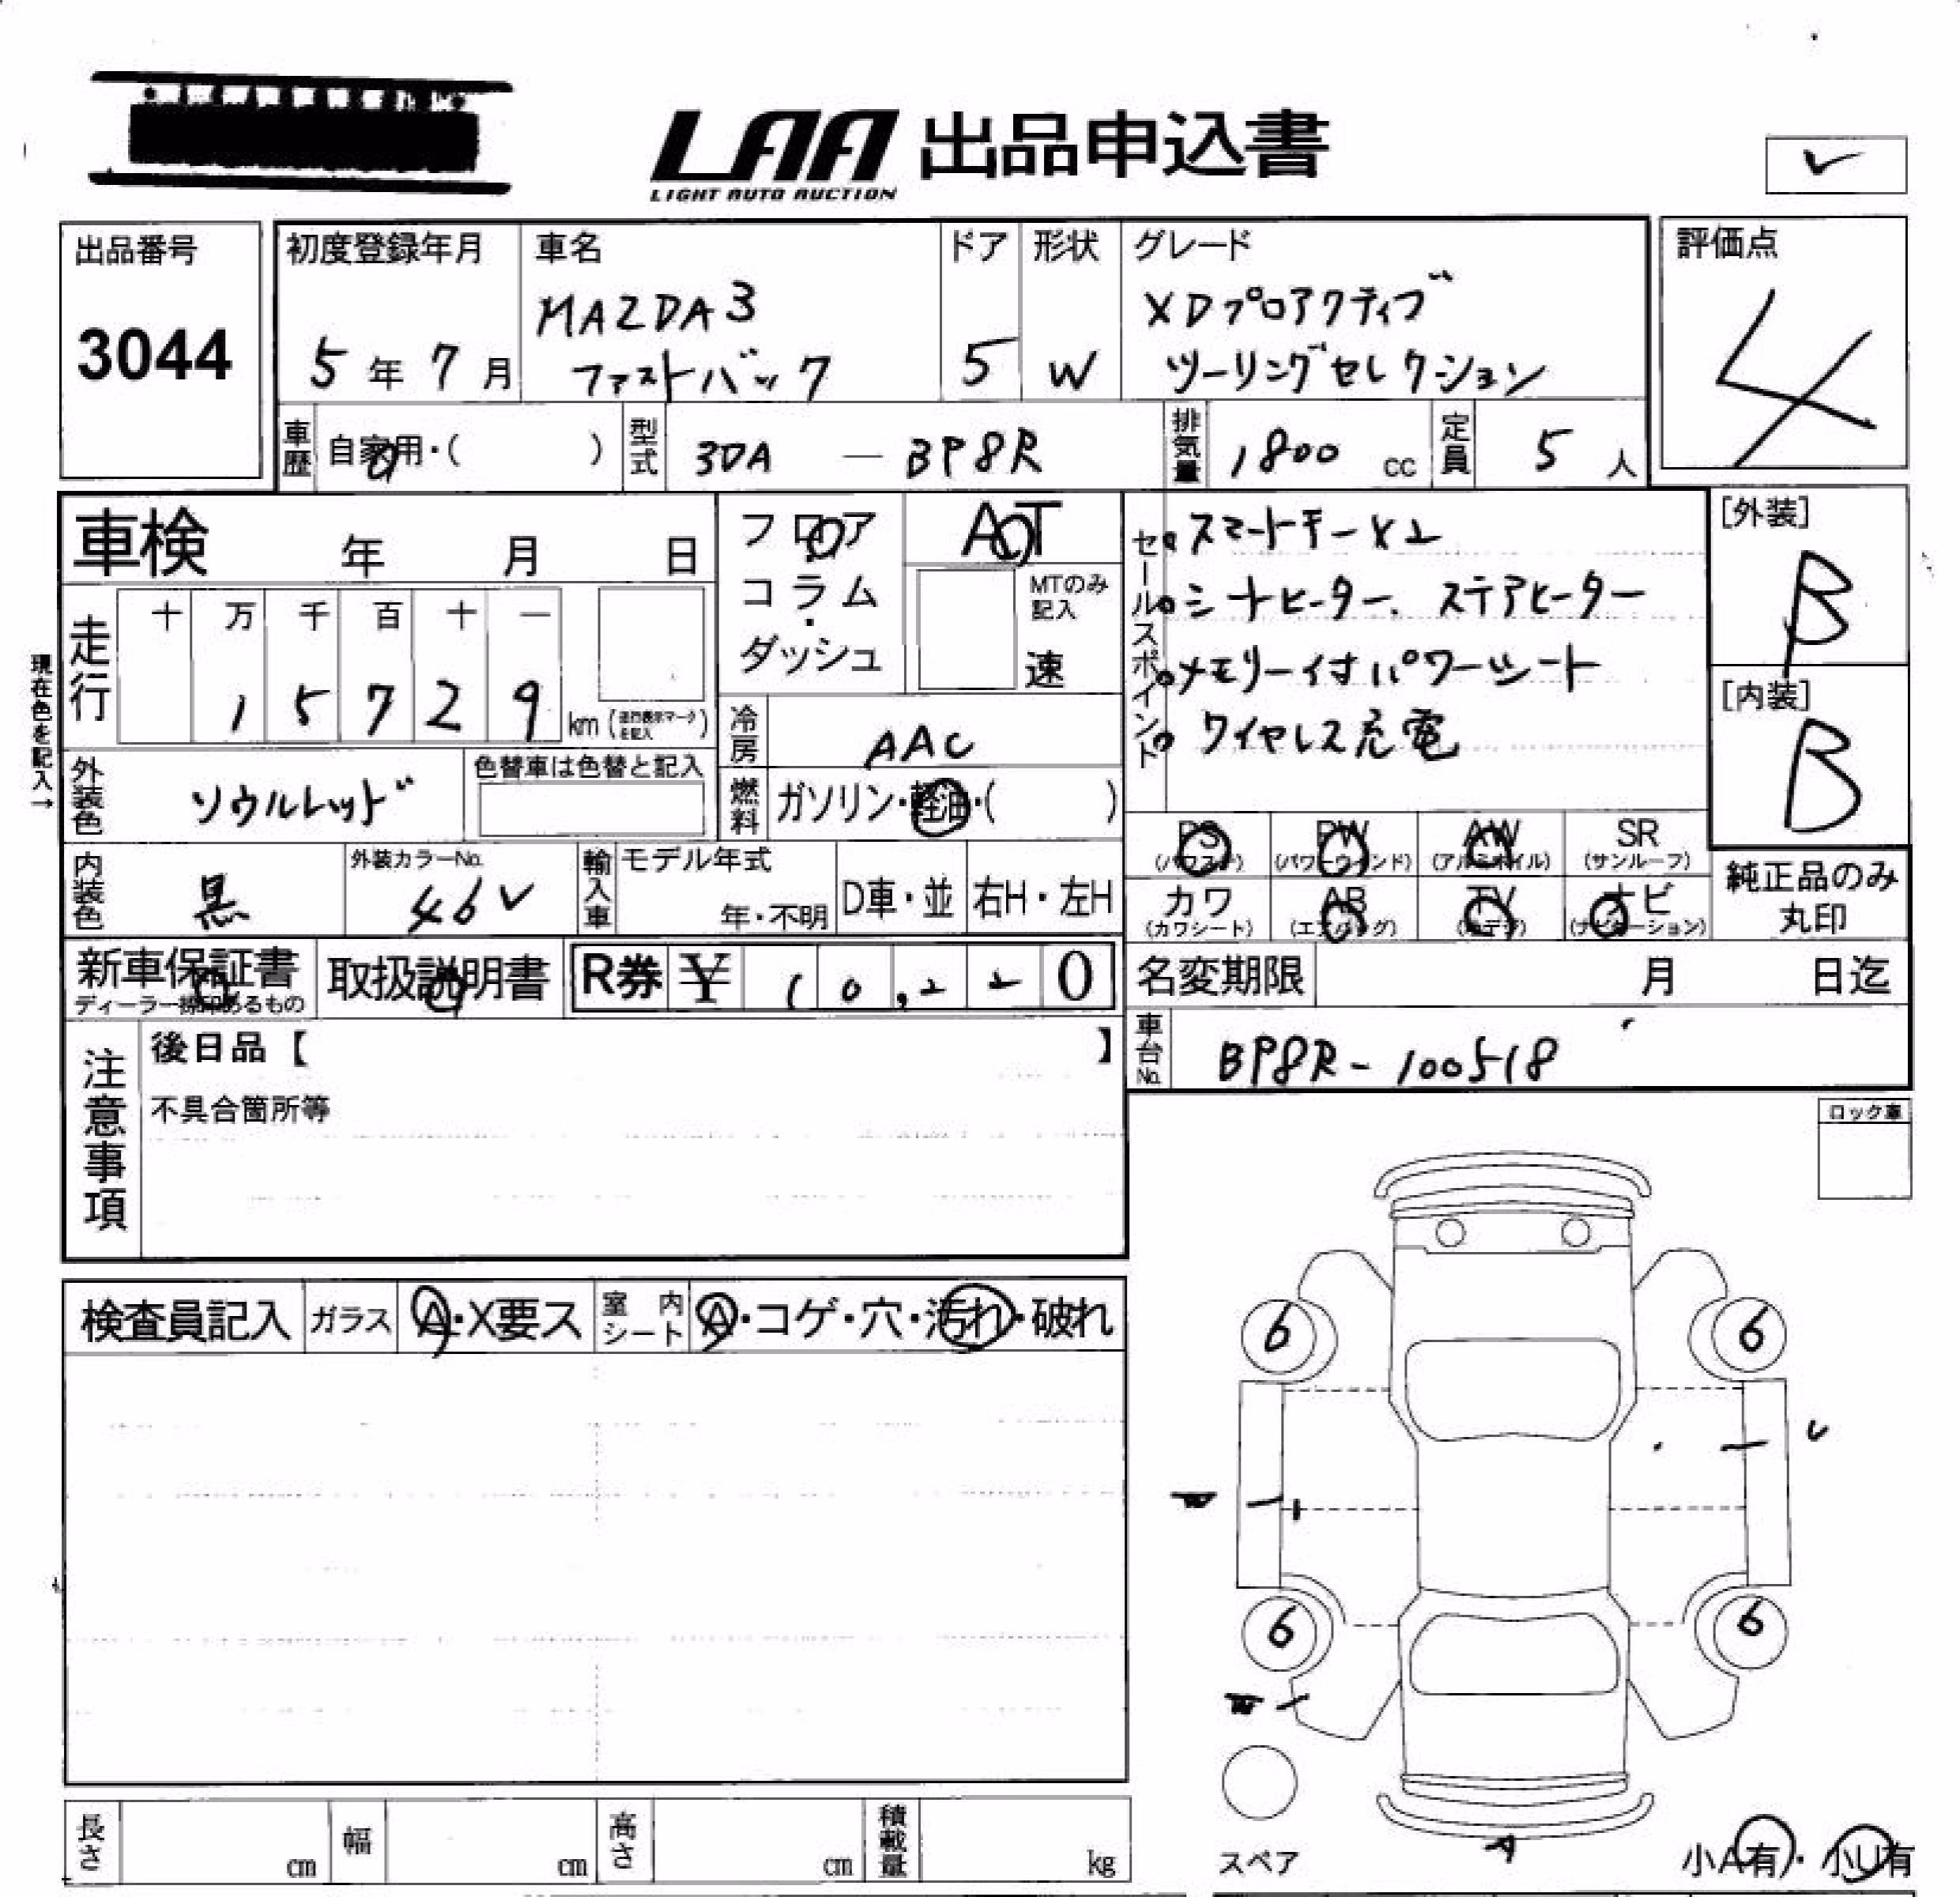 LAA 出品申込書
LIGHT AUTO AUCTION
出品番号
3044
初度登録年月
5年7月
車名
MAZDA3
ファストバック
ドア
5
形状
W
グレード
XDプロアクティブ
ツーリングセレクション
評価点
4
車歴
自家用・( )
型式
3DA — BP8R
排気量
1800 cc
定員
5人
車検 年 月 日
フロア・コラム・ダッシュ
AT
MTのみ記入
速
セールスポイント
スマートキーx2
シートヒーター、ステアヒーター
メモリー付パワーシート
ワイヤレス充電
[外装]
B
[内装]
B
現在色を記入→
走行
十 万 千 百 十 一
1 5 7 2 9 km (走行表示マークを記入)
冷房
AAC
外装色
ソウルレッド
色替車は色替と記入
燃料
ガソリン・軽油・( )
PS (パワステ)
PW (パワーウインド)
AW (アルミホイル)
SR (サンルーフ)
カワ (カワシート)
AB (エアバッグ)
TV (テレビ)
ナビ (ナビゲーション)
純正品のみ丸印
内装色
黒
外装カラーNo.
46V
輸入車
モデル年式
年・不明
D車・並
右H・左H
新車保証書
ディーラー捺印あるもの
取扱説明書
R券 ¥ 10,220
名変期限 月 日迄
車台No.
BP8R-100518
注意事項
後日品【 】
不具合箇所等
ロック車
検査員記入
ガラス
A・X要ス
室内シート
A・コゲ・穴・汚れ・破れ
6 6
U
6 6
A
スペア
小A有・小U有
長さ cm
幅 cm
高さ cm
積載量 kg